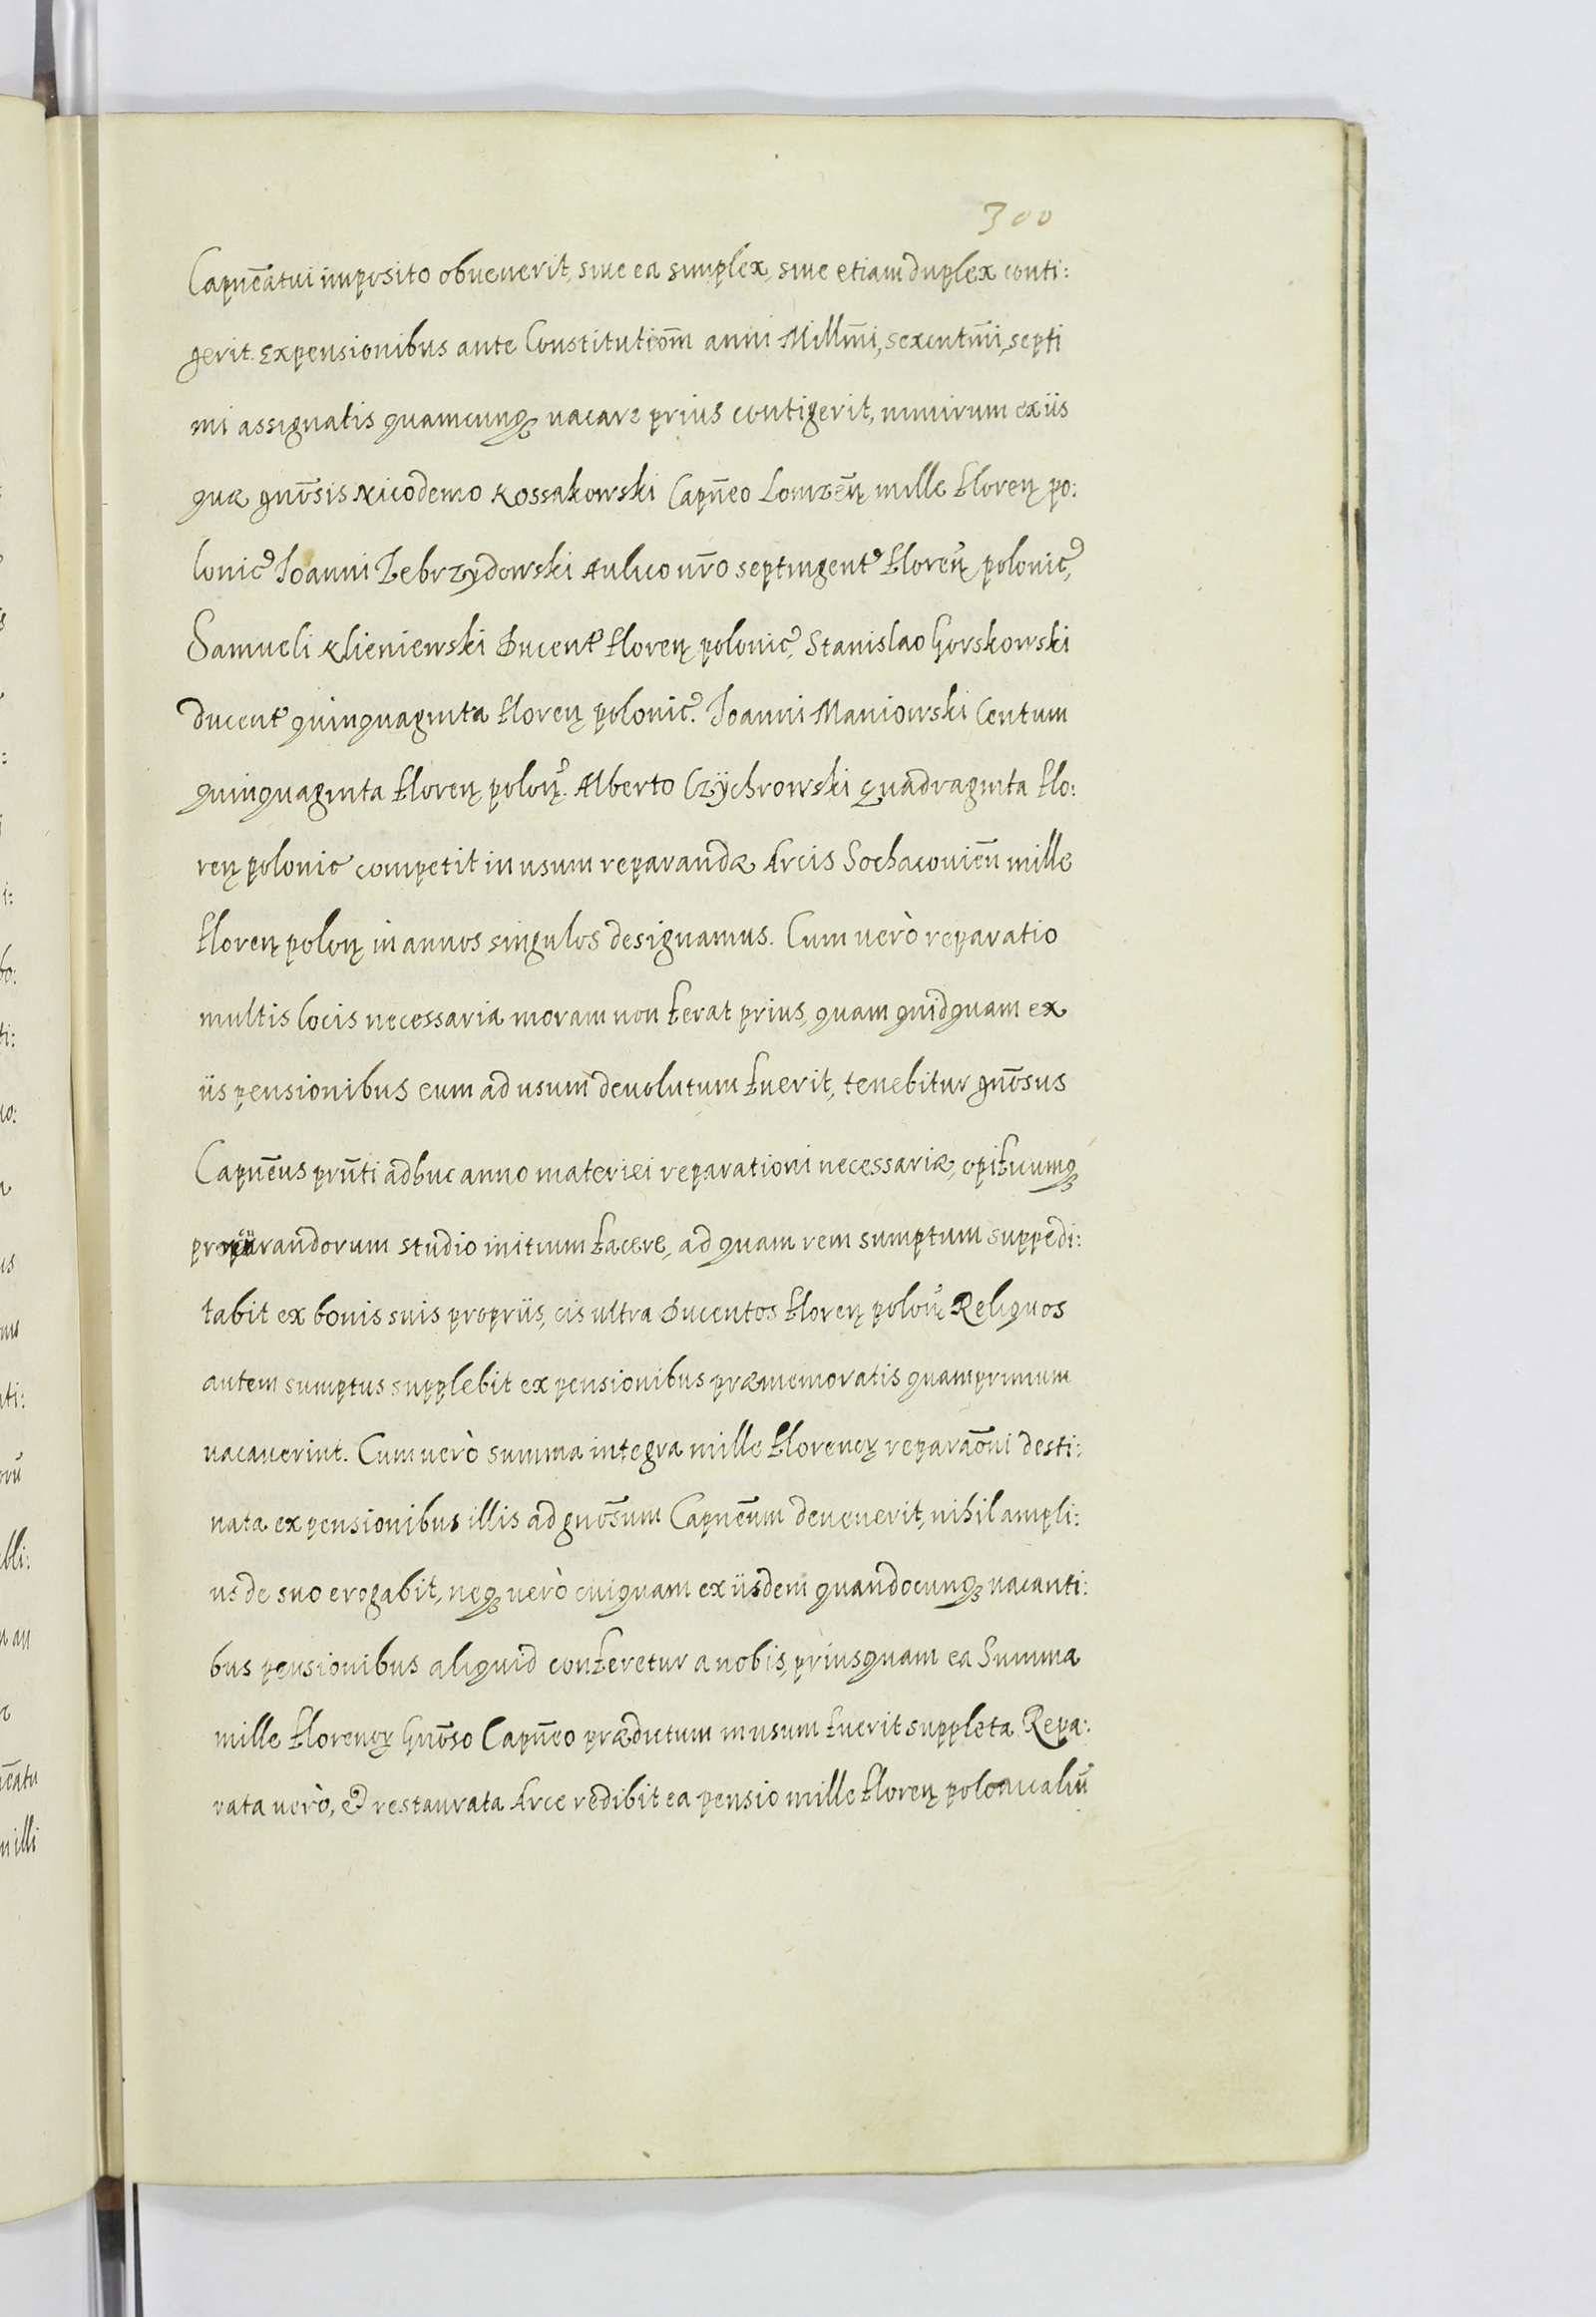 300
Capnēatui imposito obvenerit, sive ea simplex, sive etiam duplex conti:
gerit. Ex pensionibus ante Constitutiōm anni Millm̄i, sexcentm̄i, septi
mi assignatis quamcunq vacare prius contigerit, nimirum ex iis
quæ gnōsis Nicodemo Kossakowski Capn̄eo Lomzen̄ mille floren po:
lonic Joanni Zebrzydowski Aulico nr̄o septingent floren polonic,
Samueli Klieniewski Ducent floren polonic, Stanislao Gorskowski
ducent quinquaginta floren polonic. Joanni Maniowski Centum
quinquaginta floren polon. Alberto Czÿchrowski Quadraginta flo:
ren polonic competit in usum reparandæ Arcis Sochacovien̄ mille
floren polon in annos singulos designamus. Cum verò reparatio
multis locis necessaria moram non ferat prius, quam quidquam ex
iis pensionibus eum ad usum devolutum fuerit, tenebitur gnōsus
Capnēus prn̄ti adhuc anno materiei reparationi necessariæ, opificumq
procurandorum studio initium facere, ad quam rem sumptum suppedi:
tabit ex bonis suis propriis, cis ultra Ducentos floren polon Reliquos
autem sumptus supplebit ex pensionibus præmemoratis quamprimum
vacaverint. Cum verò summa integra mille florenor reparaōni desti:
nata ex pensionibus illis ad gnōsum Capnēum devenerit, nihil ampli:
us de suo erogabit, neq verò cuiquam ex iisdem quandocunq vacanti:
bus pensionibus aliquid conferetur a nobis, priusquam ea Summa
mille florenor Gnōso Capn̄eo prædictum in usum fuerit suppleta. Repa:
rata verò, & restaurata Arce redibit ea pensio mille floren polon